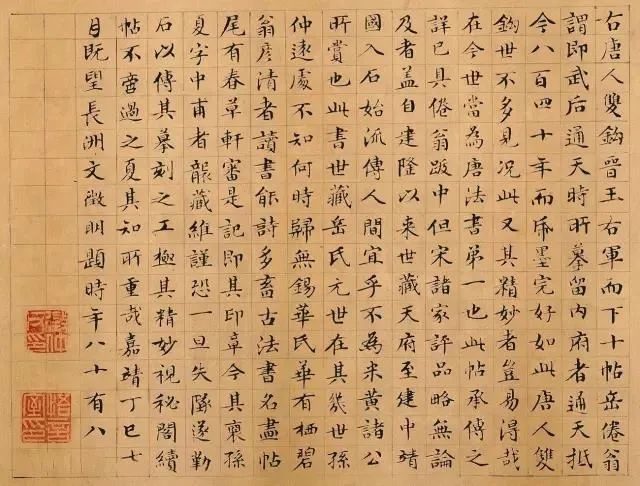 右唐人雙鈎晉王右軍而下十帖岳倦翁
謂即武后通天時所摹留内府者通天抵
今八百四十年而帋墨完好如此唐人雙
鈎世不多見况此又其精妙者豈易得哉
在今世當為唐法書第一也此帖承傳之
詳已具倦翁跋中但宋諸家評品略無論
及者蓋自建隆以来世藏天府至建中靖
國入石始流傳人間宜乎不為米黃諸公
所賞也此書世藏岳氏元世在其幾世孫
仲遠處不知何時歸無錫華氏華有栖碧
翁彦清者讀書能詩多畜古法書名畫帖
尾有春草軒審是記即其印章今其裔孫
夏字中甫者襲藏維謹恐一旦失隊遂勒
石以傳其摹刻之工極其精妙視秘閣續
帖不啻過之夏其知所重哉嘉靖丁巳七
月既望長洲文徵明題時年八十有八